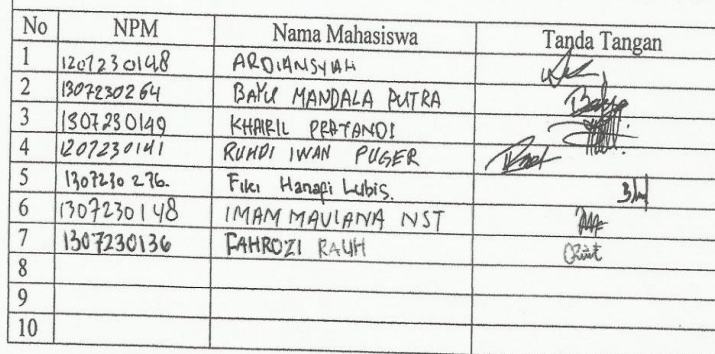 No NPM Nama Mahasiswa Tanda Tangan
1 1207230148 ARDIANSYAH
2 1307230264 BAYU MANDALA PUTRA
3 1307230149 KHAIRIL PRATANDI
4 1207230141 RUHDI IWAN PUGER
5 1307230 276. Fiki Hanafi Lubis.
6 1307230148 IMAM MAULANA NST
7 1307230136 FAHROZI RAUH
8
9
10